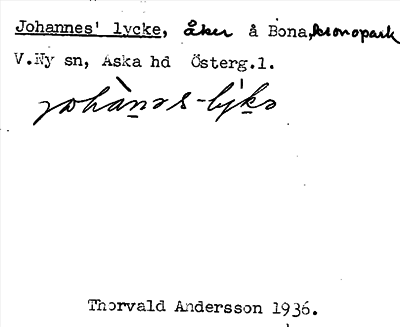 Johannes' lycke, åker å Bona, kronopark
V.Ny sn, Aska hd Österg.l.
johànəs-lýkə
Thorvald Andersson 1936.